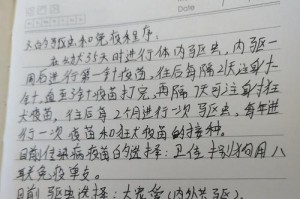 犬的驱虫和免疫程序:
在幼犬35天时进行体内驱虫,内驱一
周后进行第一针疫苗,往后每隔21天注射
一针,直至3针疫苗打完,再隔7天可注射狂
犬疫苗,往后每2个月进行一次驱虫,每年进
行一次疫苗和狂犬疫苗的接种。
目前传染病疫苗的选择:卫佳 特别狗用八
联犬免疫单支。
目前驱虫选择:大宠爱(内外共驱)
Date